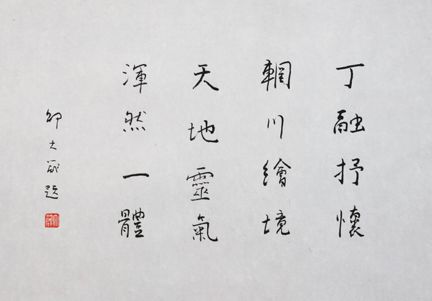 丁融抒懷
輞川繪境
天地靈氣
渾然一體
邵大箴題